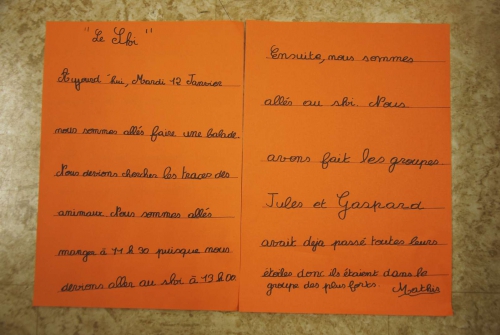 "Le Ski"
Aujourd'hui, Mardi 12 Janvier
nous sommes allés faire une balade.
Nous devions chercher les traces des
animaux Nous sommes allés
manger à 11 h 30 puisque nous
devions aller au ski à 13 h 00.
Ensuite, nous sommes
allés au ski. Nous
avons fait les groupes
Jules et Gaspard
avait deja passé toutes leurs
étoiles donc ils étaient dans le
groupe des plus forts. Mathis